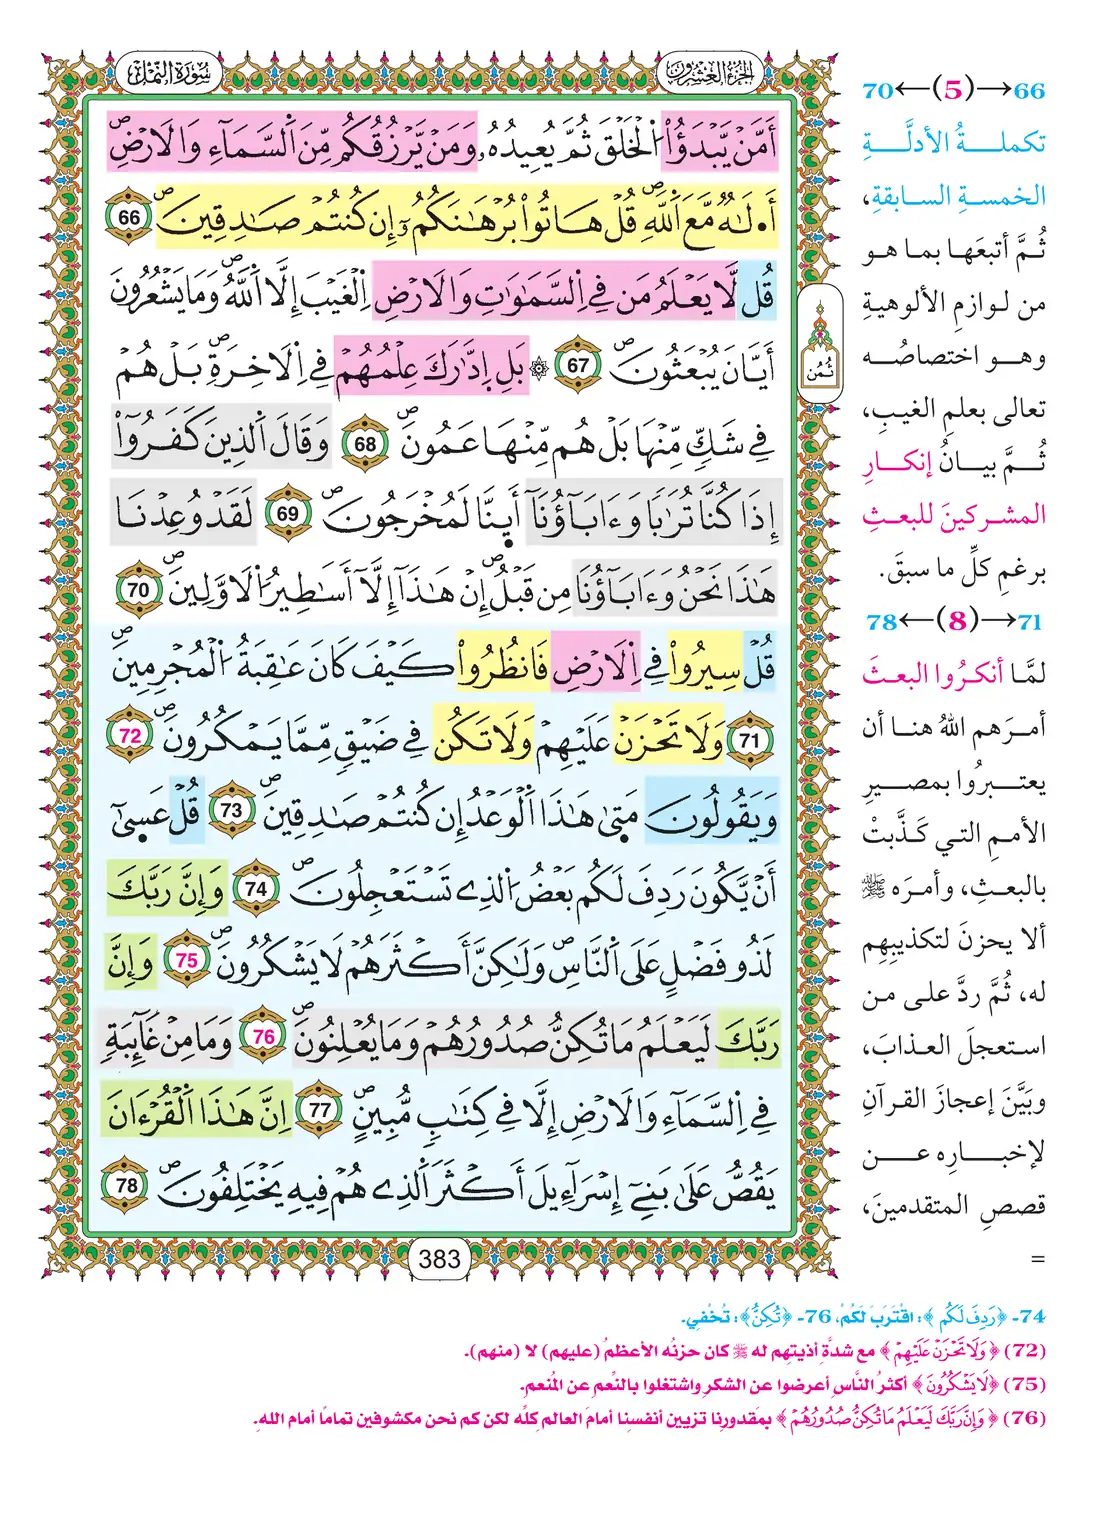 سُورَةُ النَّمْلِ
الجُزْءُ العِشْرُونَ
أَمَّنْ يَّبْدَؤُاْ اُلْخَلْقَ ثُمَّ يُعِيدُهُۥ وَمَنْ يَّرْزُقُكُم مِّنَ اَلسَّمَآءِ وَالَارْضِۖ
أَ•لَٰهٌ مَّعَ اَللَّهِۖ قُلْ هَاتُواْ بُرْهَٰنَكُمُۥٓ إِن كُنتُمْ صَٰدِقِينَۖ 66
قُل لَّا يَعْلَمُ مَن فِے اِلسَّمَٰوَٰتِ وَالَارْضِ اِلْغَيْبَ إِلَّا اَللَّهُۖ وَمَا يَشْعُرُونَ
أَيَّانَ يُبْعَثُونَۖ 67 ۞ بَلِ اِدَّٰرَكَ عِلْمُهُمْ فِے اِلَاخِرَةِۖ بَلْ هُمْ
فِے شَكٍّ مِّنْهَا بَلْ هُم مِّنْهَا عَمُونَۖ 68 وَقَالَ اَلذِينَ كَفَرُوٓاْ
إِذَا كُنَّا تُرَٰباً وَءَابَآؤُنَآ أَيِ۟نَّا لَمُخْرَجُونَۖ 69 لَقَدْ وُعِدْنَا
هَٰذَا نَحْنُ وَءَابَآؤُنَا مِن قَبْلُۖ إِنْ هَٰذَآ إِلَّآ أَسَٰطِيرُ اُلَاوَّلِينَۖ 70
قُلْ سِيرُواْ فِے اِلَارْضِ فَانظُرُواْ كَيْفَ كَانَ عَٰقِبَةُ اُلْمُجْرِمِينَۖ
71 وَلَا تَحْزَنْ عَلَيْهِمْ وَلَا تَكُن فِے ضَيْقٍ مِّمَّا يَمْكُرُونَۖ 72
وَيَقُولُونَ مَتَىٰ هَٰذَا اَلْوَعْدُ إِن كُنتُمْ صَٰدِقِينَۖ 73 قُلْ عَس۪ىٰٓ
أَنْ يَّكُونَ رَدِفَ لَكُم بَعْضُ اُلذِے تَسْتَعْجِلُونَۖ 74 وَإِنَّ رَبَّكَ
لَذُو فَضْلٍ عَلَى اَلنَّاسِۖ وَلَٰكِنَّ أَكْثَرَهُمْ لَا يَشْكُرُونَۖ 75 وَإِنَّ
رَبَّكَ لَيَعْلَمُ مَا تُكِنُّ صُدُورُهُمْ وَمَا يُعْلِنُونَۖ 76 وَمَا مِنْ غَآئِبَةٍ
فِے اِلسَّمَآءِ وَالَارْضِ إِلَّا فِے كِتَٰبٍ مُّبِينٍۖ 77 اِنَّ هَٰذَا اَلْقُرْءَانَ
يَقُصُّ عَلَىٰ بَنِےٓ إِسْرَآءِيلَ أَكْثَرَ اَلذِے هُمْ فِيهِ يَخْتَلِفُونَۖ 78
ثُمُن
383
70←(5)→66
تكملةُ الأدلَّةِ
الخمسةِ السابقةِ،
ثُمَّ أتبعَها بما هو
من لوازمِ الألوهيةِ
وهو اختصاصُه
تعالى بعلمِ الغيبِ،
ثُمَّ بيانُ إنكارِ
المشركينَ للبعثِ
برغمِ كلِّ ما سبقَ.
78←(8)→71
لمَّا أنكرُوا البعثَ
أمرَهم اللهُ هنا أن
يعتبرُوا بمصيرِ
الأممِ التي كَذَّبتْ
بالبعثِ، وأمرَه ﷺ
ألا يحزنَ لتكذيبِهِم
له، ثُمَّ ردَّ على من
استعجلَ العذابَ،
وبَيَّنَ إعجازَ القرآنِ
لإخبارِه عن
قصصِ المتقدمينَ،
=
74- ﴿رَدِفَ لَكُم﴾: اقْتَرَبَ لَكُمْ، 76- ﴿تُكِنُّ﴾: تُخْفِي.
(72) ﴿وَلَا تَحْزَنْ عَلَيْهِمْ﴾ مع شدَّةِ أذيتِهِم له ﷺ كان حزنُه الأعظمُ (عليهم) لا (منهم).
(75) ﴿لَا يَشْكُرُونَ﴾ أكثرُ النَّاسِ أعرضوا عن الشكرِ واشتغلوا بالنِّعمِ عن المُنعمِ.
(76) ﴿وَإِنَّ رَبَّكَ لَيَعْلَمُ مَا تُكِنُّ صُدُورُهُمْ﴾ بمَقدورِنا تزيين أنفسنا أمامَ العالمِ كلِّه لكن كم نحن مكشوفين تمامًا أمام اللهِ.